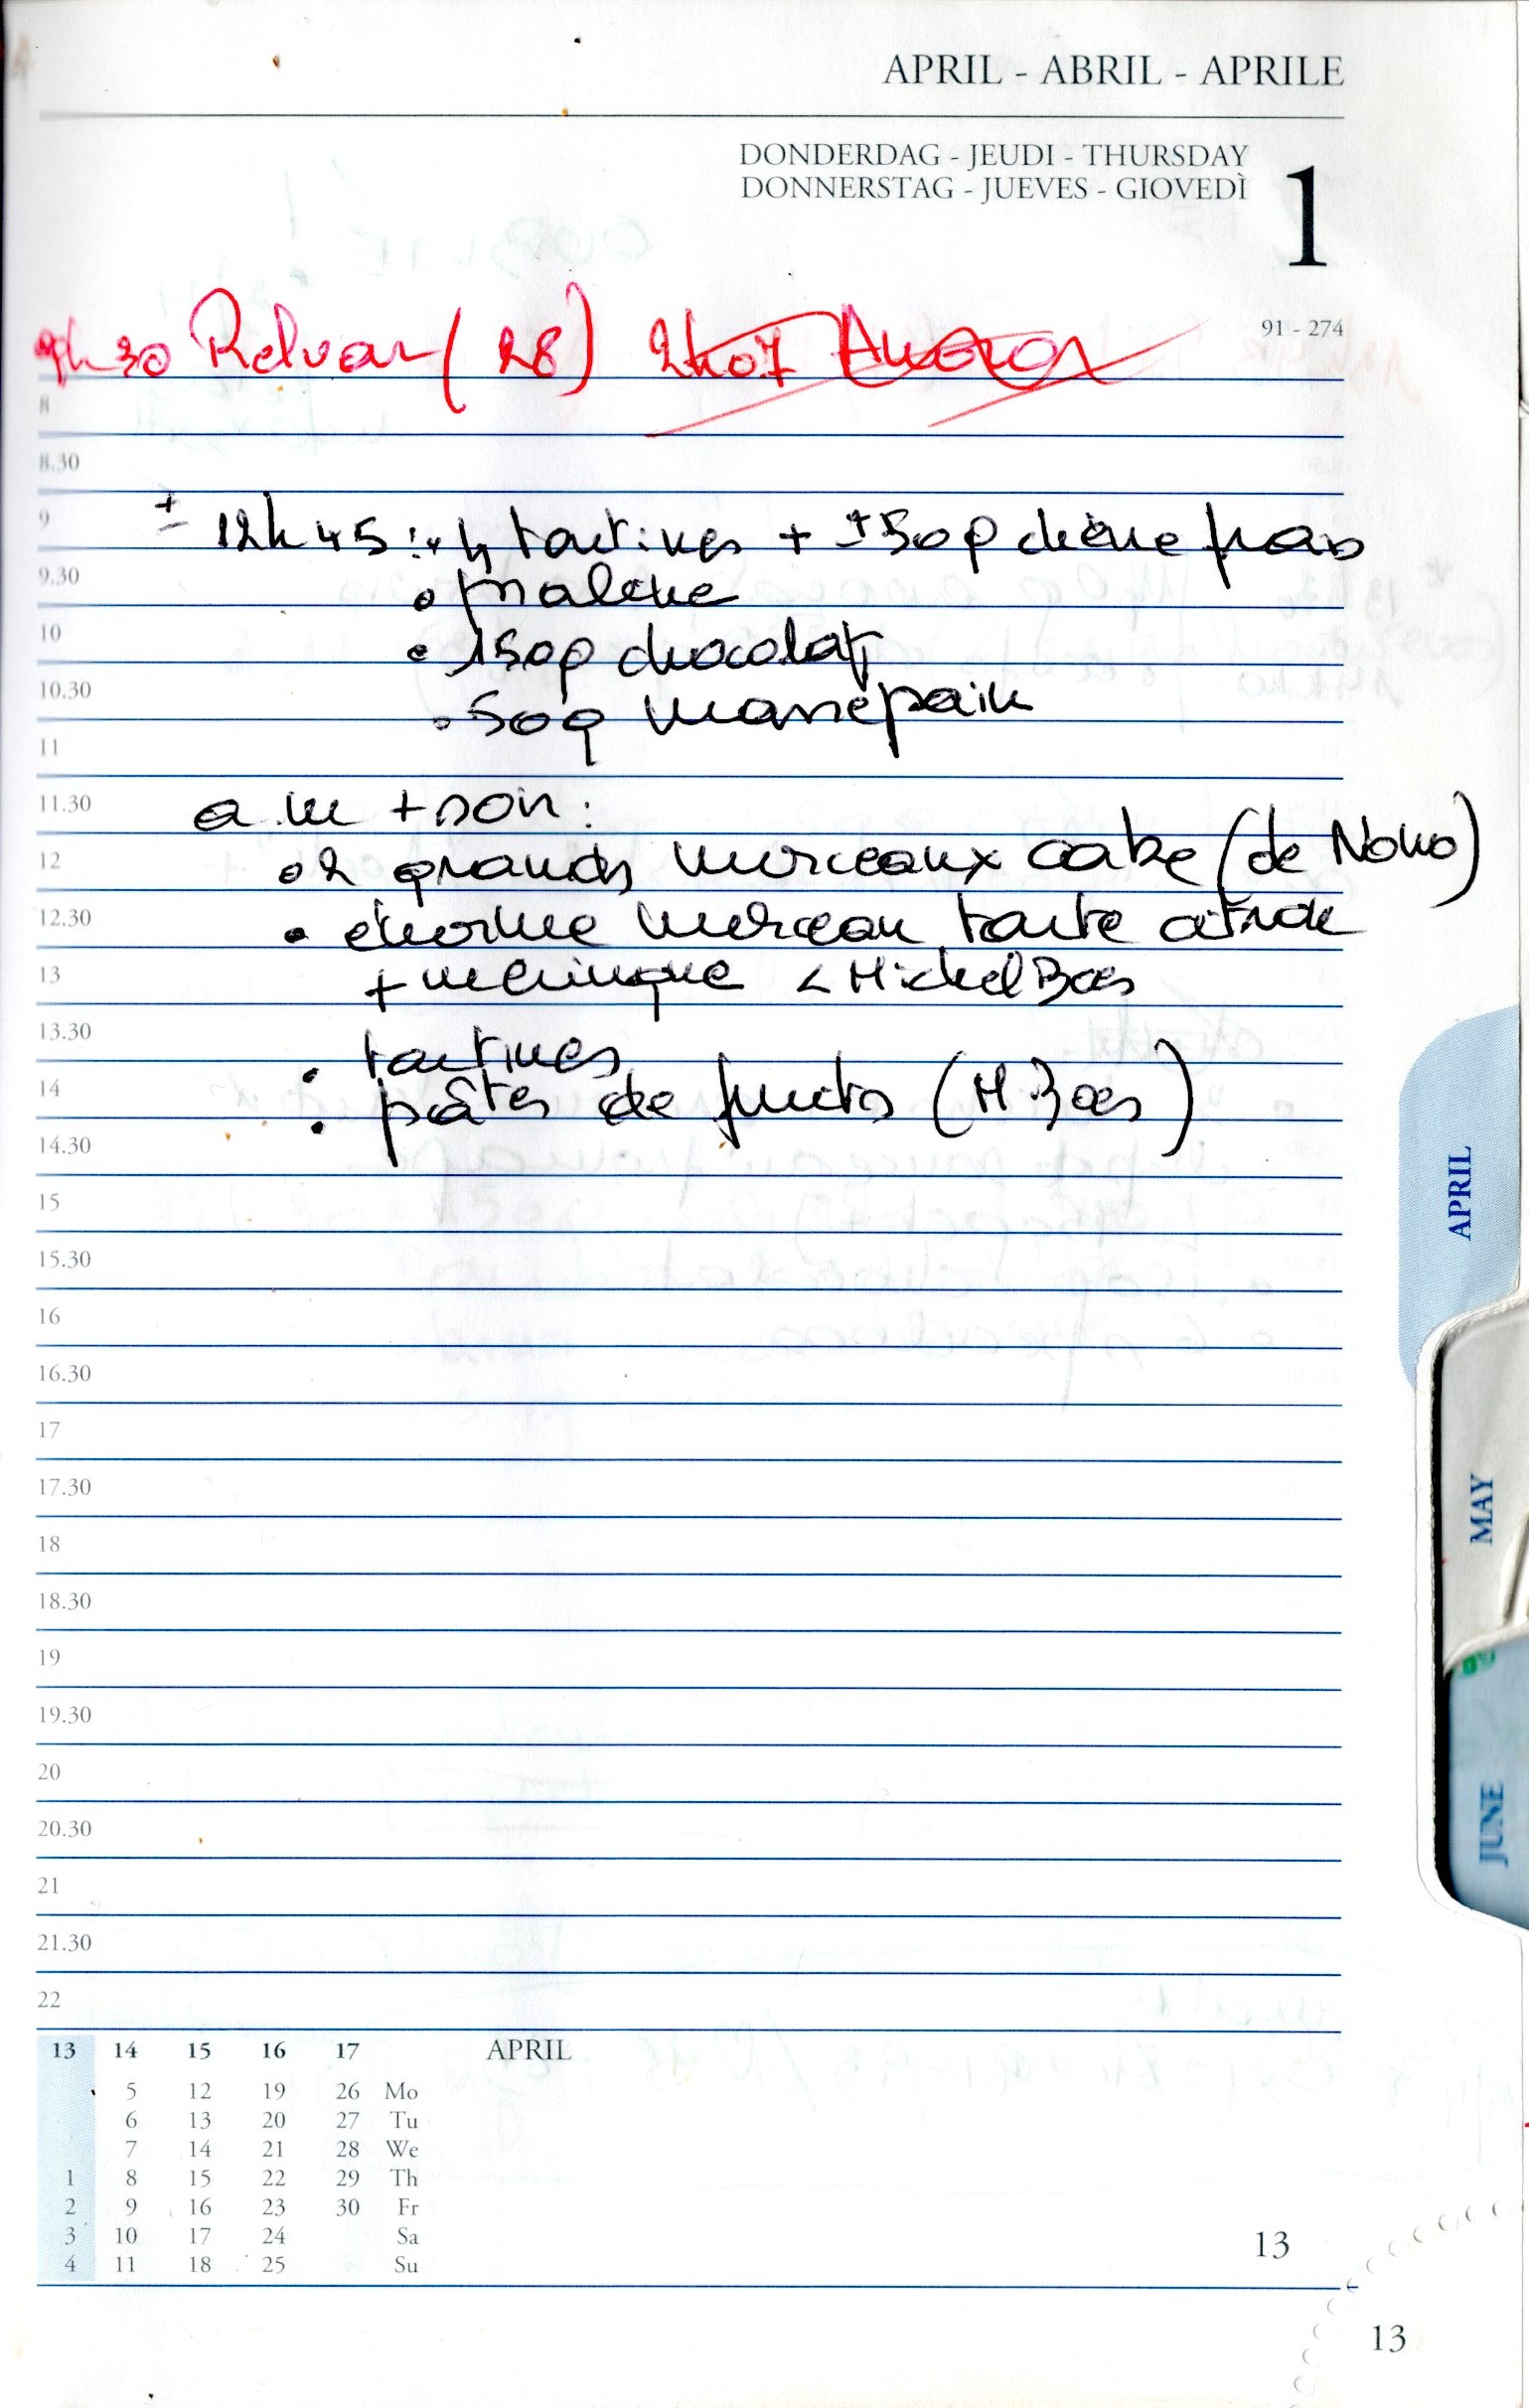 APRIL - ABRIL - APRILE
DONDERDAG - JEUDI - THURSDAY
DONNERSTAG - JUEVES - GIOVEDÌ
1
91 - 274
9h30 (28) 2h07
8
8.30
± 12h45 : • 4 tartines + ± 50g chèvre frais
9
9.30
• praline
10
• 150g chocolat
10.30
• 50g massepain
11
11.30
a.m + soir :
12
• 2 grands morceaux cake (de Nono)
12.30
• énorme morceau tarte citron
13
+ meringue < Michel Baes
13.30
• tartines
14
• pâtes de fruits (M. Baes)
14.30
15
15.30
16
16.30
17
17.30
18
18.30
19
19.30
20
20.30
21
21.30
22
13 14 15 16 17 APRIL
5 12 19 26 Mo
6 13 20 27 Tu
7 14 21 28 We
1 8 15 22 29 Th
2 9 16 23 30 Fr
3 10 17 24 Sa
4 11 18 25 Su
13
13
APRIL
MAY
JUNE